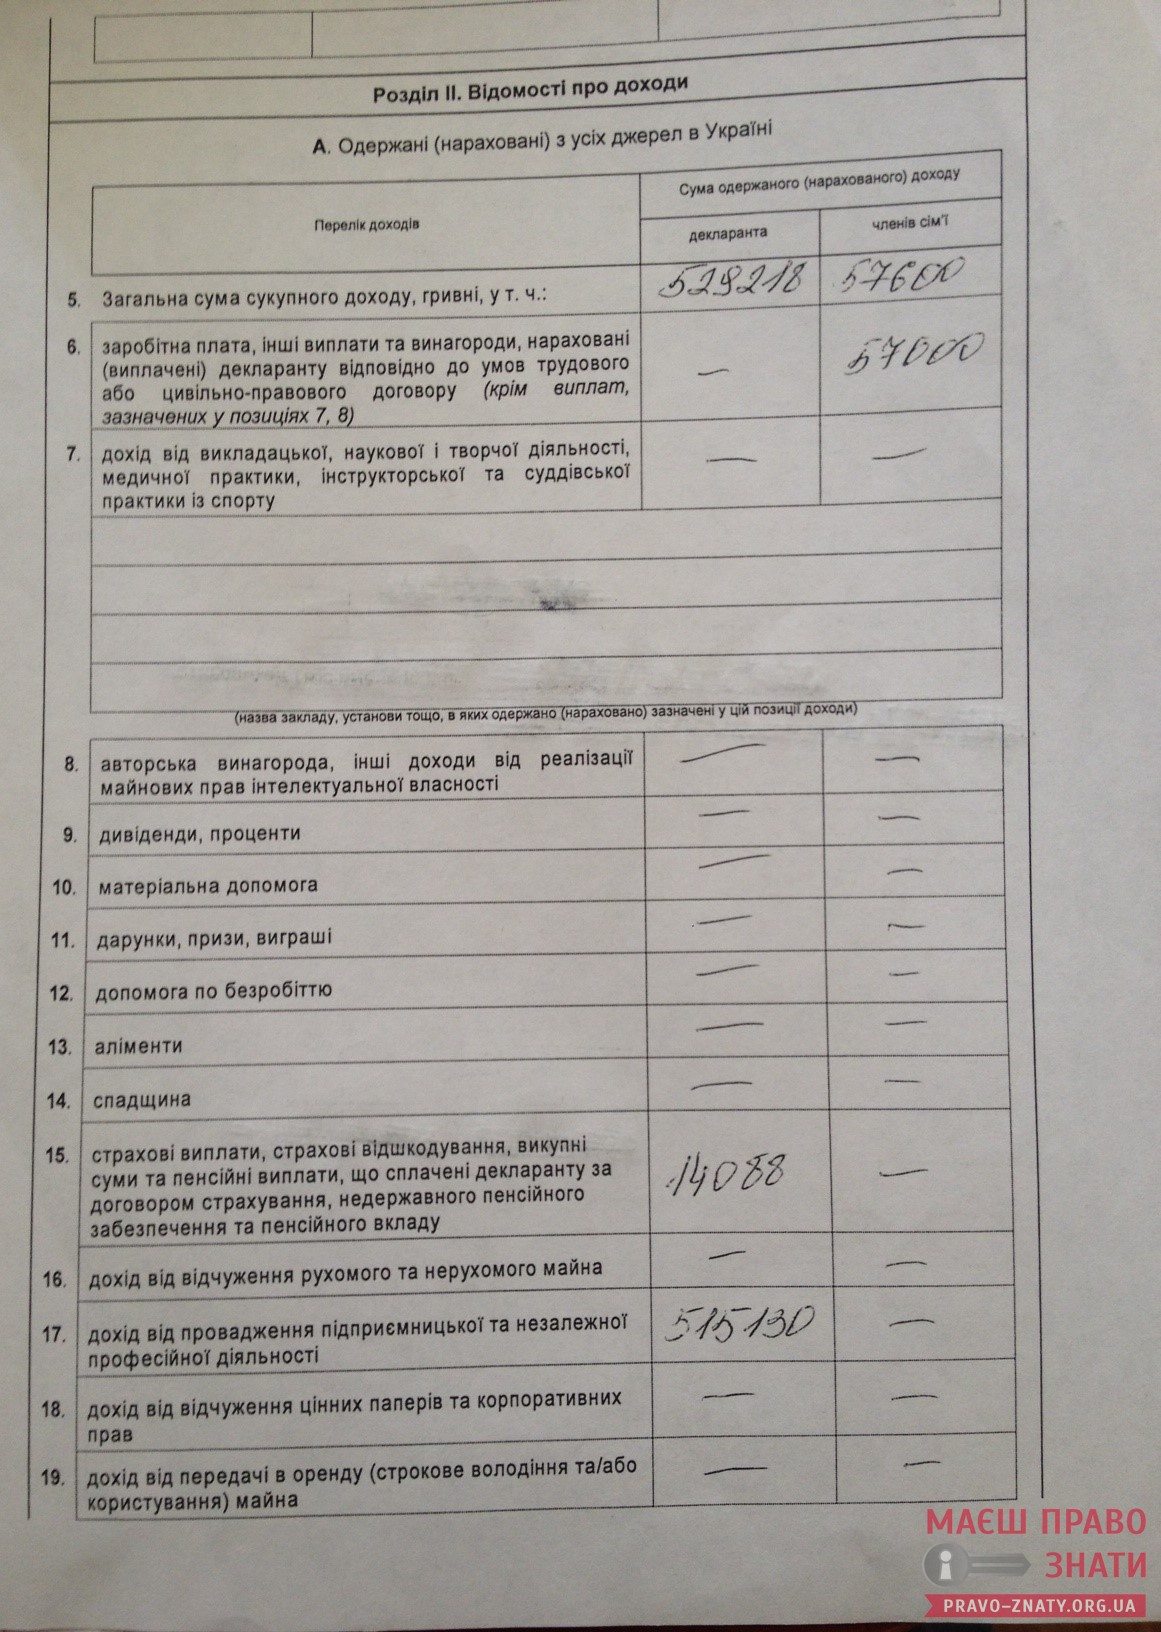 Розділ II. Відомості про доходи
А. Одержані (нараховані) з усіх джерел в Україні
Перелік доходів
Сума одержаного (нарахованого) доходу
декларанта
членів сім'ї
5. Загальна сума сукупного доходу, гривні, у т. ч.: 529218 57600
6. заробітна плата, інші виплати та винагороди, нараховані
(виплачені) декларанту відповідно до умов трудового
або цивільно-правового договору (крім виплат,
зазначених у позиціях 7, 8)
— 57000
7. дохід від викладацької, наукової і творчої діяльності,
медичної практики, інструкторської та суддівської
практики із спорту
— —
(назва закладу, установи тощо, в яких одержано (нараховано) зазначені у цій позиції доходи)
8. авторська винагорода, інші доходи від реалізації
майнових прав інтелектуальної власності
— —
9. дивіденди, проценти — —
10. матеріальна допомога — —
11. дарунки, призи, виграші — —
12. допомога по безробіттю — —
13. аліменти — —
14. спадщина — —
15. страхові виплати, страхові відшкодування, викупні
суми та пенсійні виплати, що сплачені декларанту за
договором страхування, недержавного пенсійного
забезпечення та пенсійного вкладу
14088 —
16. дохід від відчуження рухомого та нерухомого майна — —
17. дохід від провадження підприємницької та незалежної
професійної діяльності
515130 —
18. дохід від відчуження цінних паперів та корпоративних
прав
— —
19. дохід від передачі в оренду (строкове володіння та/або
користування) майна
— —
МАЄШ ПРАВО
ЗНАТИ
PRAVO-ZNATY.ORG.UA